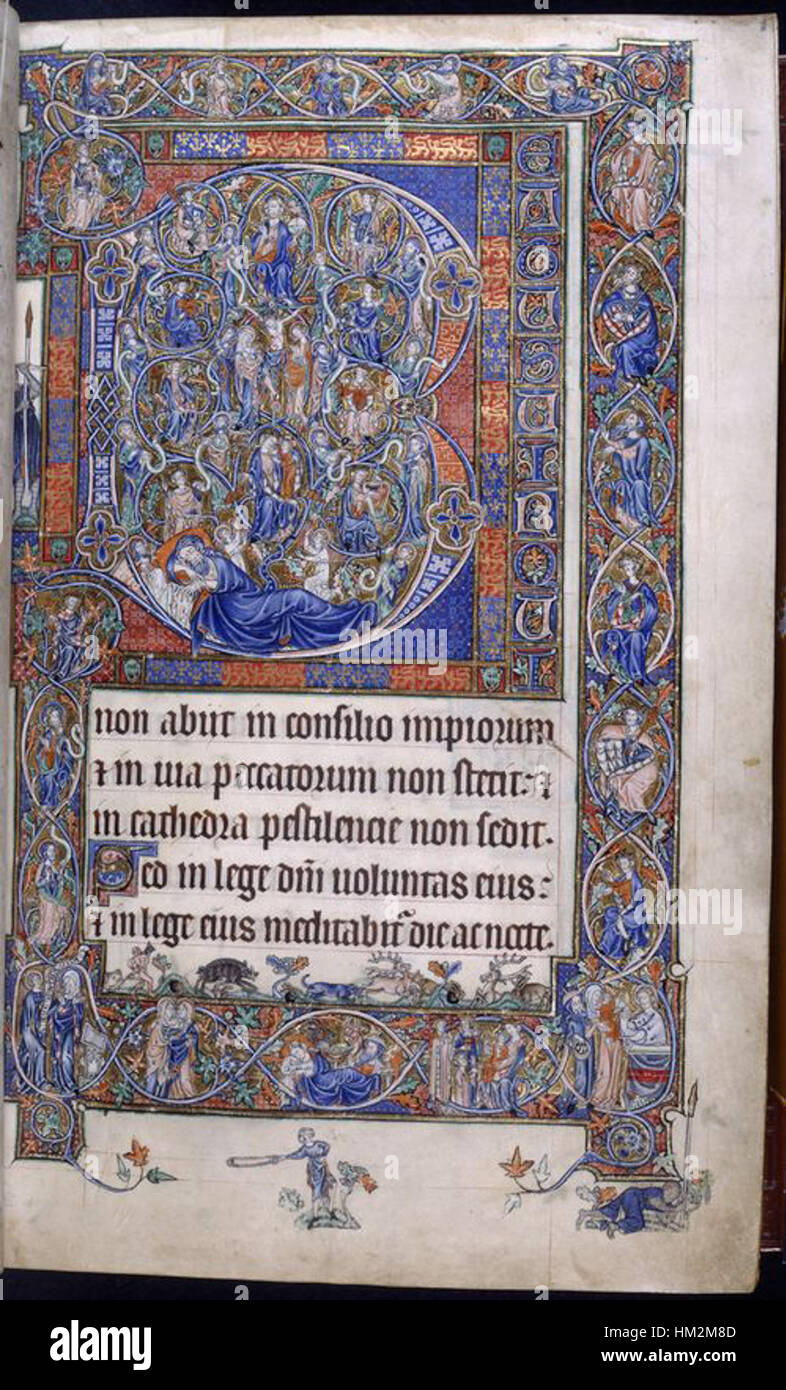 B
EATUSUIRQUI
non abiit in consilio impiorum
⁊ in uia peccatorum non stetit: ⁊
in cathedra pestilencie non sedit.
Sed in lege dñi uoluntas eius:
⁊ in lege eius meditabit᷑ die ac nocte.
alamy
a
alamy stock photo
HM2M8D
www.alamy.com